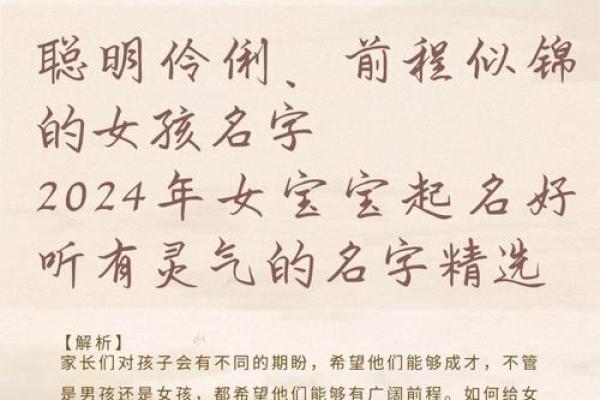 聪明伶俐、前程似锦
的女孩名字
2024年女宝宝起名好
听有灵气的名字精选
【解析】
家长们对孩子会有不同的期盼，希望他们能够成才，不管
是男孩还是女孩，都希望他们能够有广阔前程。如何给女